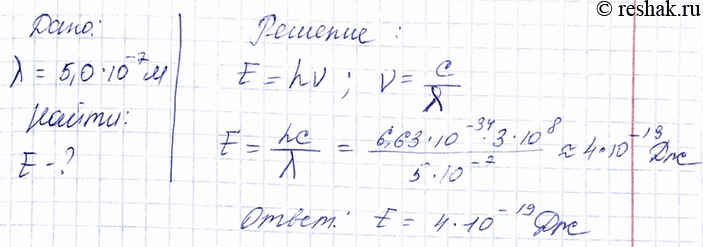 © reshak.ru
Дано:
λ = 5,0·10⁻⁷ м
Найти:
E - ?
Решение:
E = hν; ν = c/λ
E = hc/λ = 6,63·10⁻³⁴·3·10⁸ / 5·10⁻⁷ ≈ 4·10⁻¹⁹ Дж
Ответ: E = 4·10⁻¹⁹ Дж